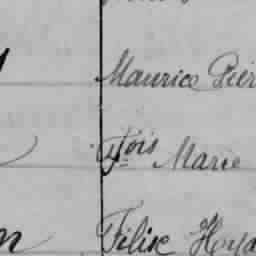 Maurice Pier
Fois Marie
Félise Hoya